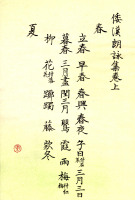 倭漢朗詠集巻上
春
立春 早春 春興 春夜 子日付若菜 三月三日
暮春 三月盡 閏三月 鶯 霞 雨 梅付紅梅
柳 花付落花 躑躅 藤 款冬
夏